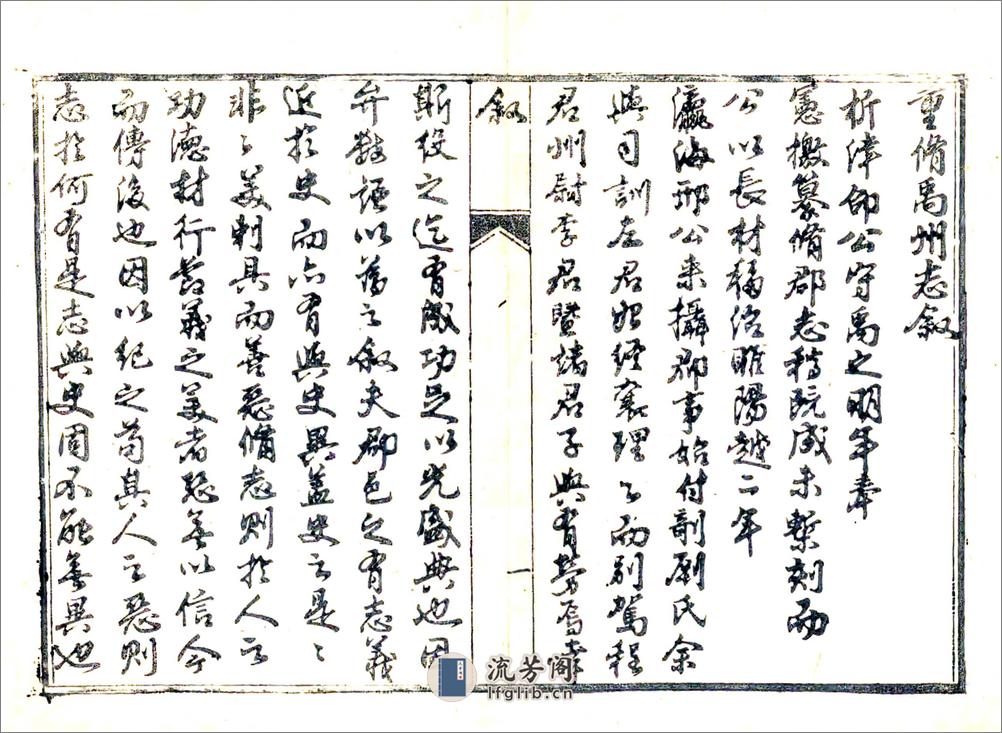 重脩禹州志叙
析津邵公守禹之明年奉
憲檄纂脩郡志稿既成未槧刻而
公以長材移治睢陽越二年
瀛海邢公来攝郡事始付剞劂氏余
與司訓左君始經襄理之而别駕程
君州尉李君暨諸君子與有勞焉
叙
一
斯役之迄有成功足以光盛典也因
弁數語以為之叙夫郡邑之有志義
近於史而亦有與史異盖史之是之
非之美刺具而善惡備志則於人之
功德材行節義之美者恐無以信今
而傳後也因以紀之苟其人之惡則
志於何有是志與史固不能無異也
流芳阁
lfglib.cn